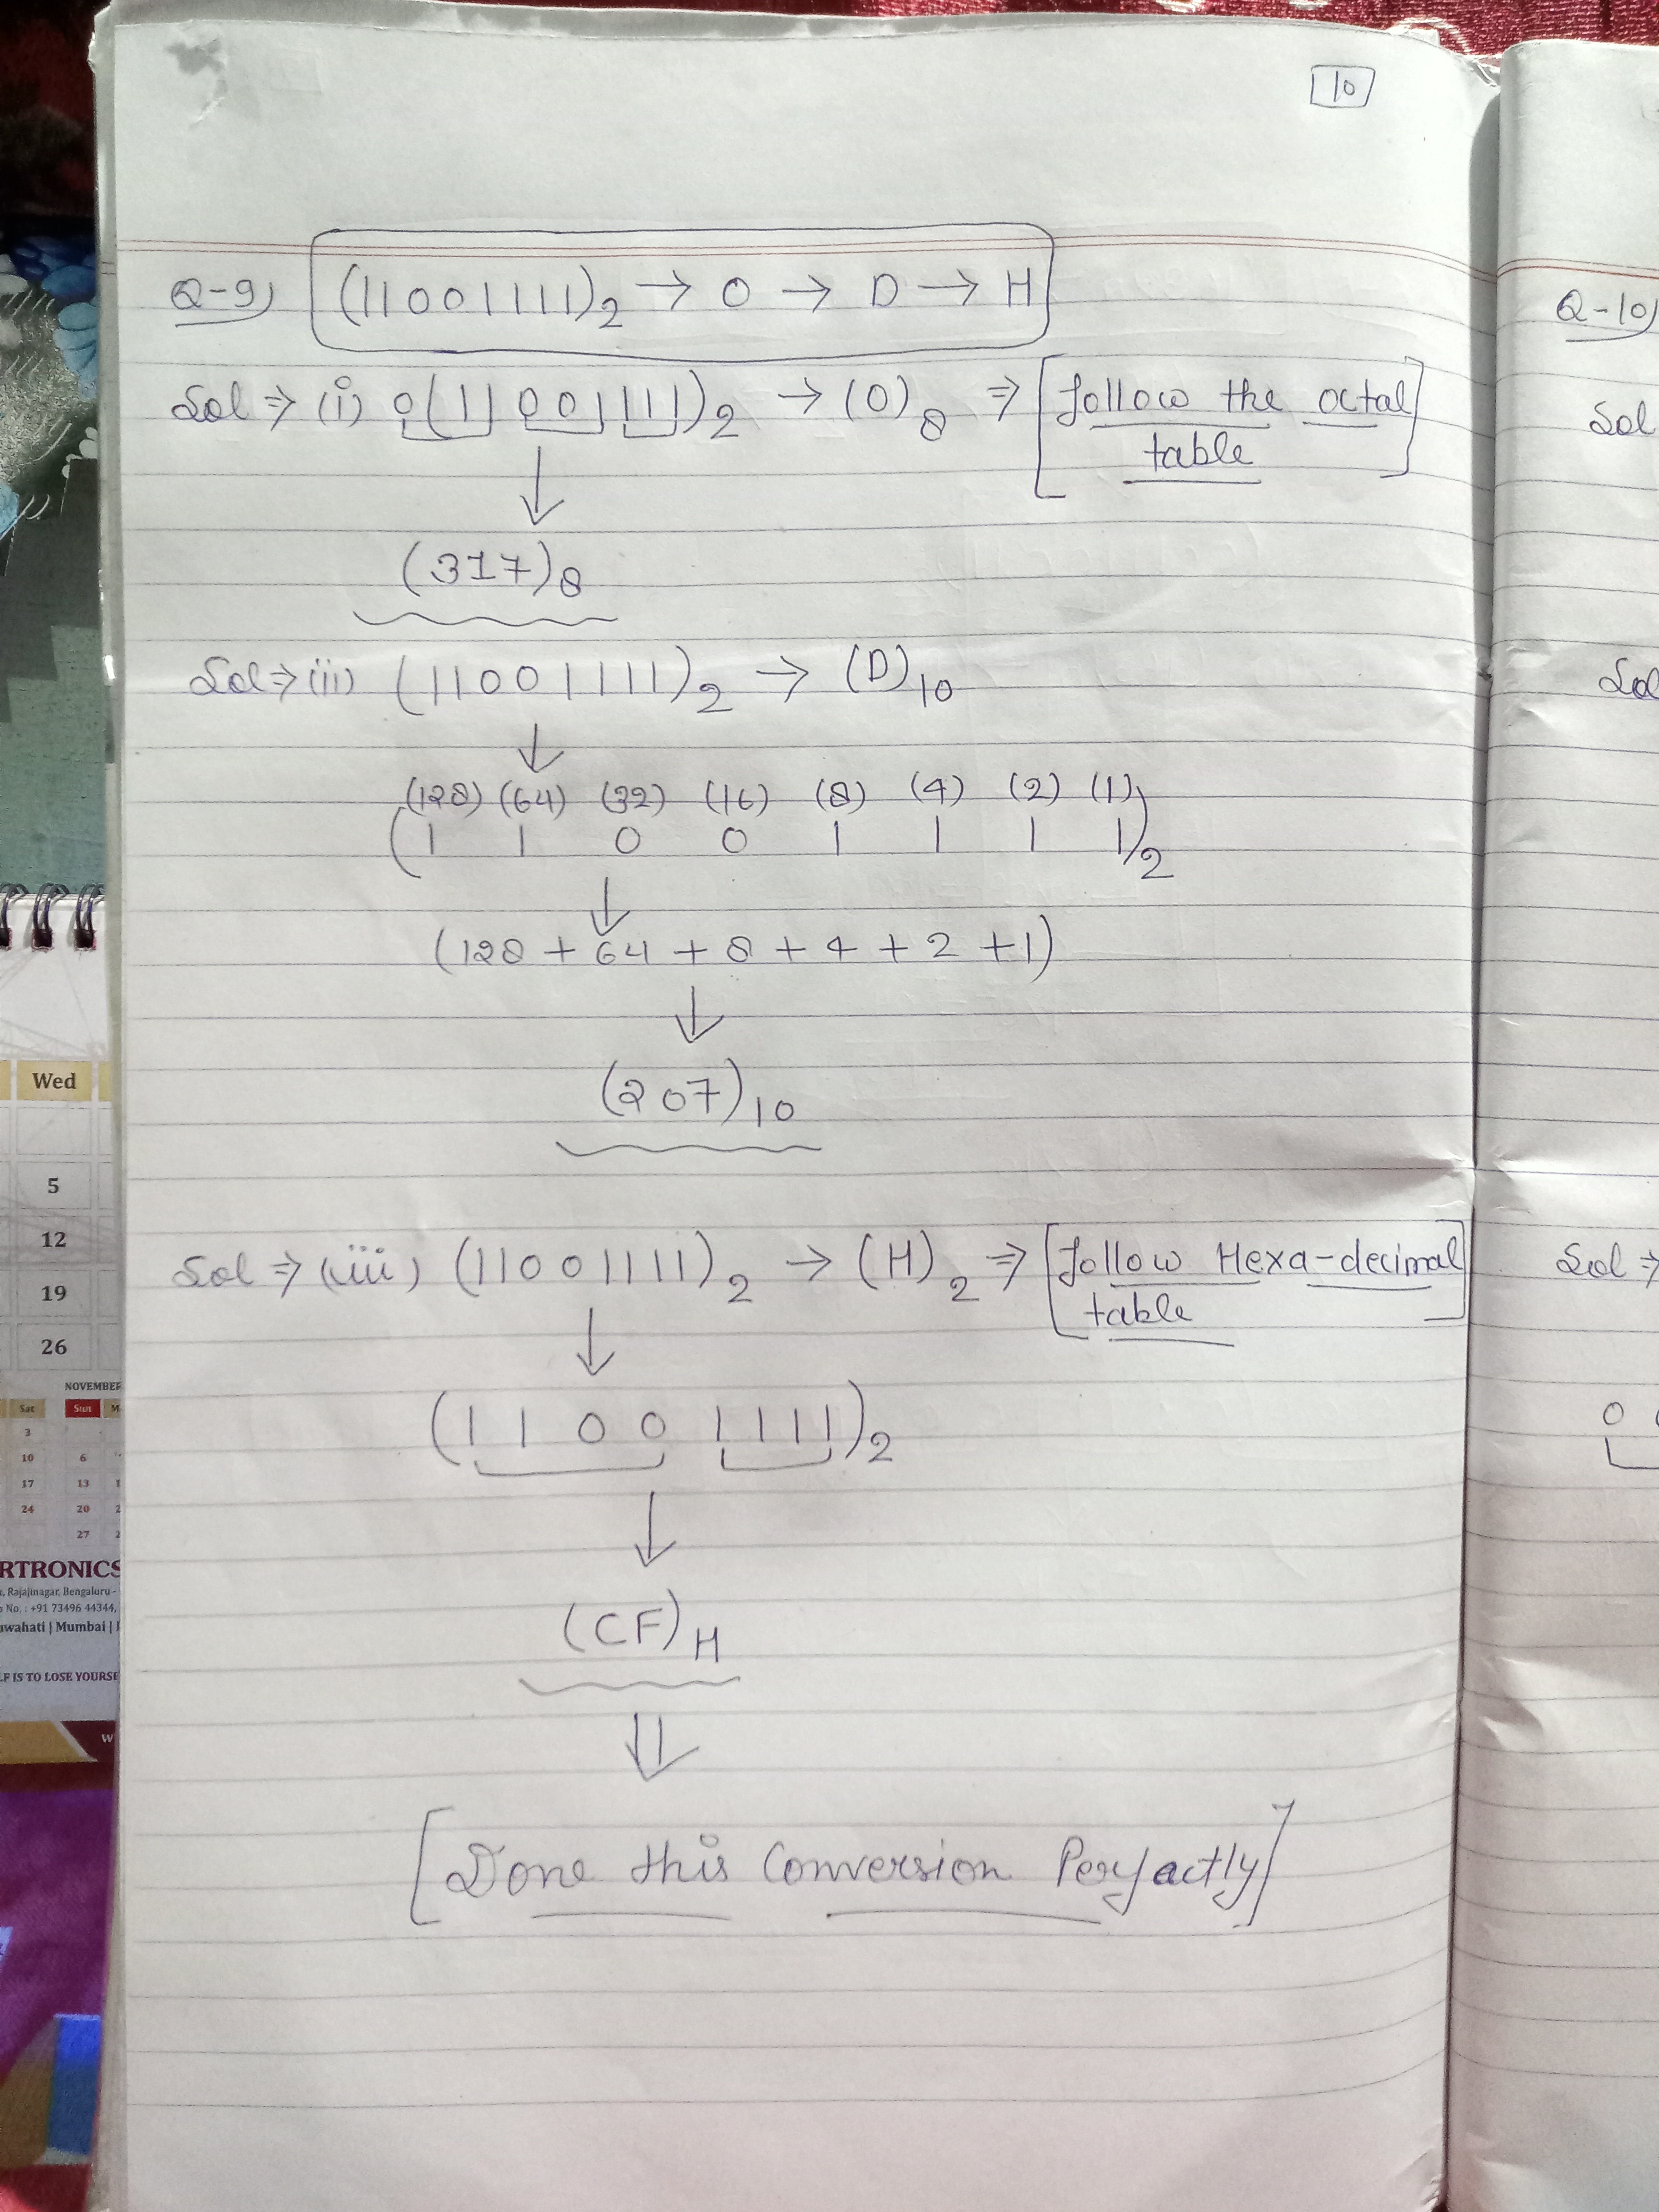 10
Q-9) (11001111)₂ → O → D → H
Sol ⇒ (i) 0(11001111)₂ → (O)₈ ⇒ [follow the octal
table]
↓
(317)₈
Sol ⇒ (ii) (11001111)₂ → (D)₁₀
↓
(128) (64) (32) (16) (8) (4) (2) (1)
(1 1 0 0 1 1 1 1)₂
↓
(128 + 64 + 8 + 4 + 2 + 1)
↓
(207)₁₀
Sol ⇒ (iii) (11001111)₂ → (H)₂ ⇒ [follow Hexa-decimal
table]
↓
(1 1 0 0 1 1 1 1)₂
↓
(CF)H
⇓
[Done this Conversion Perfactly]
Q-10)
Sol
Sol
Sol ⇒
0
Wed
5
12
19
26
NOVEMBER
Sat Sun M
3
10 6
17 13
24 20
27
RTRONICS
, Rajajinagar, Bengaluru -
No. : +91 73496 44344,
wahati | Mumbai |
F IS TO LOSE YOURSE
W